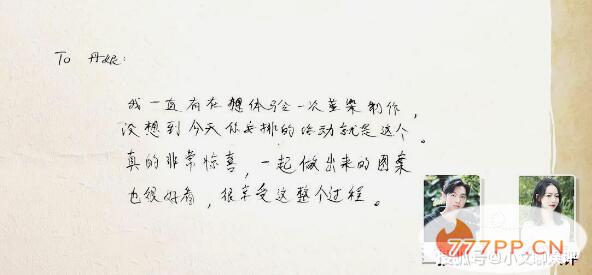 To 丹妮：
我一直有在想体验一次蓝染制作，
没想到今天你安排的活动就是这个。
真的非常惊喜，一起做出来的图案
也很好看，很享受这整个过程。
777PP.CN